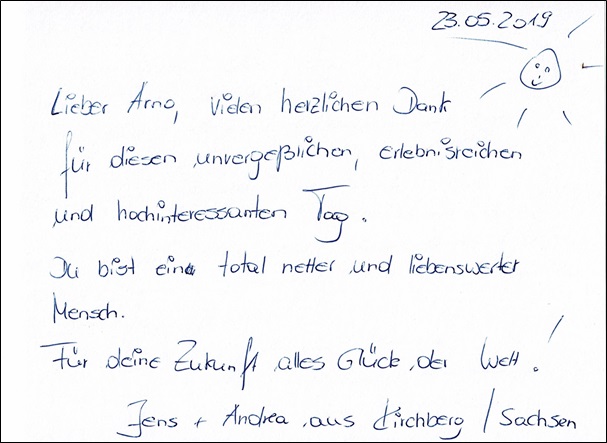 23.05.2019
Lieber Arno, vielen herzlichen Dank
für diesen unvergeßlichen, erlebnisreichen
und hochinteressanten Tag.
Du bist ein total netter und liebenswerter
Mensch.
Für deine Zukunft alles Glück der Welt!
Jens + Andrea aus Kirchberg / Sachsen